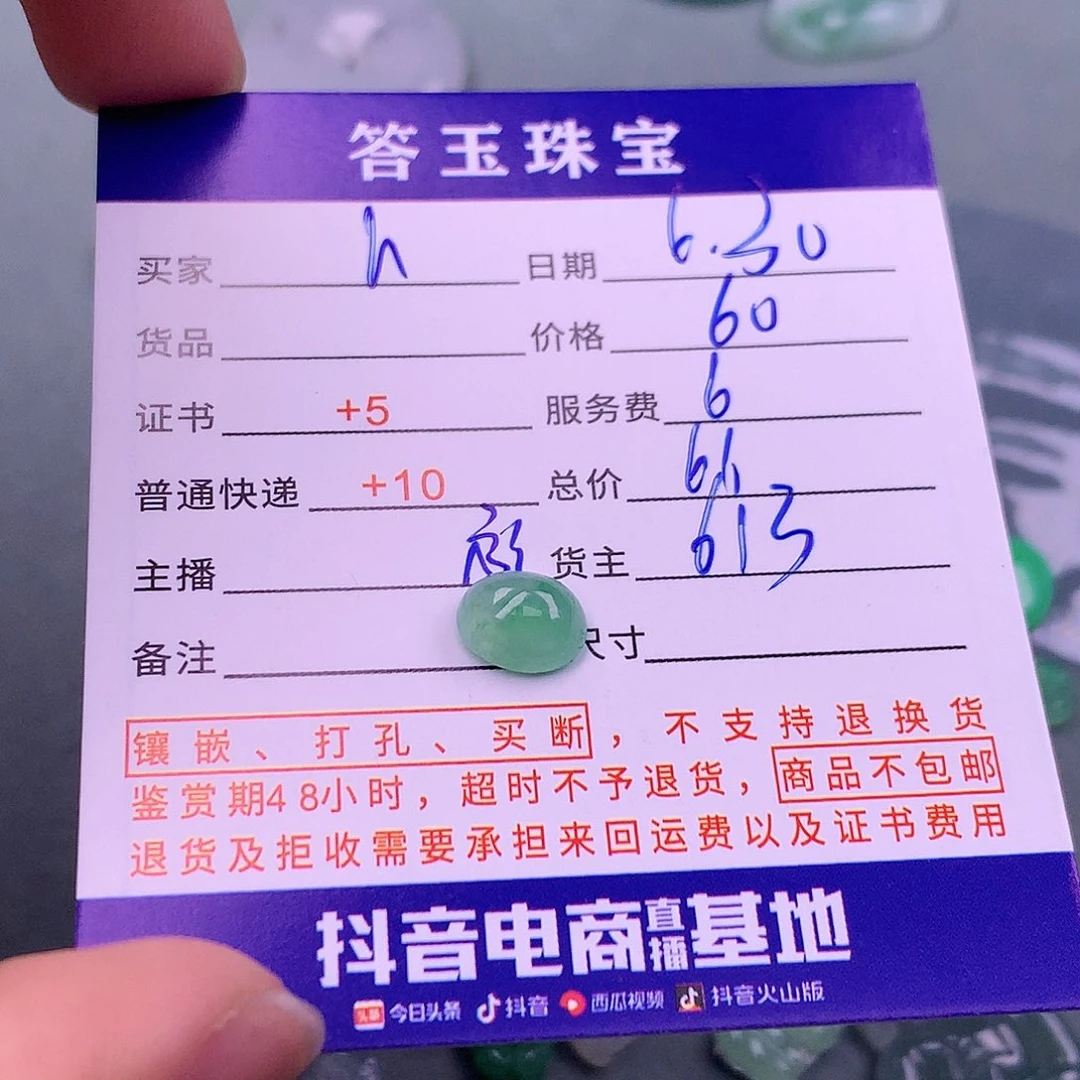 答玉珠宝
买家 h 日期 6.30
货品 价格 60
证书 +5 服务费 6
普通快递 +10 总价 66
主播 货主 613
备注 尺寸
镶嵌、打孔、买断，不支持退换货
鉴赏期48小时，超时不予退货，商品不包邮
退货及拒收需要承担来回运费以及证书费用
抖音电商直播基地
头条 今日头条 抖音 西瓜视频 抖音火山版